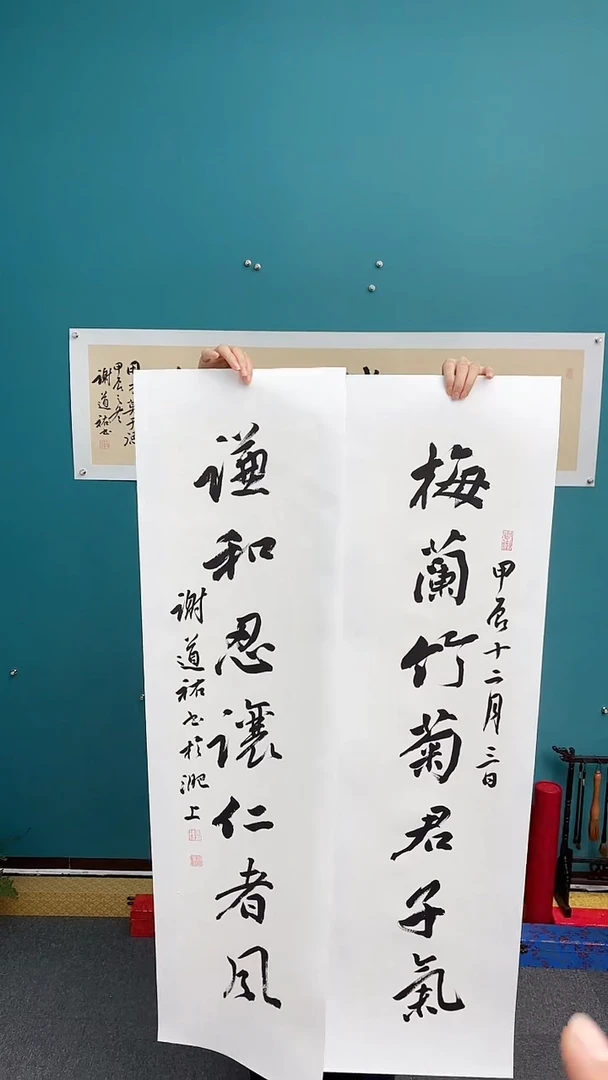 梅蘭竹菊君子氣
甲辰十二月三日
謙和忍讓仁者風
谢道祐书於淝上
甲辰之冬
谢道祐书